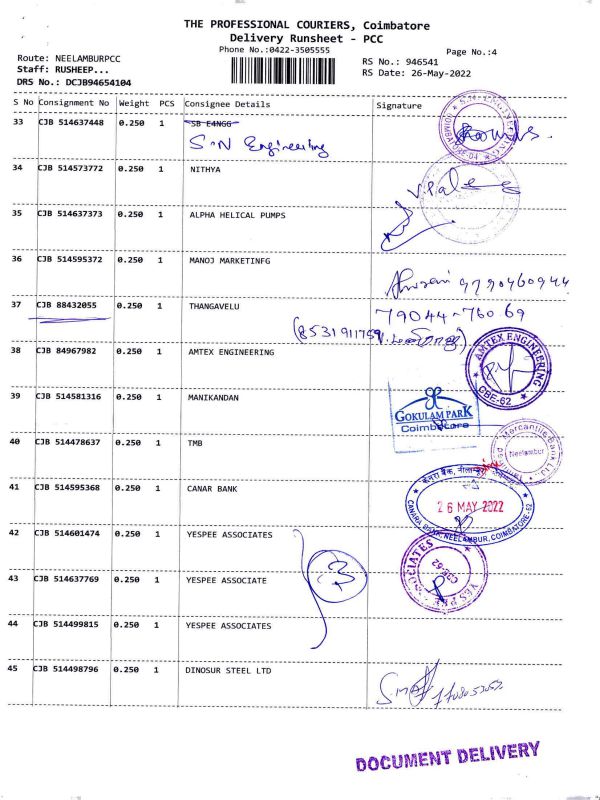 THE PROFESSIONAL COURIERS, Coimbatore
Delivery Runsheet - PCC
Phone No.:0422-3505555
Page No.:4
Route: NEELAMBURPCC
Staff: RUSHEEP...
DRS No.: DCJB94654104
RS No.: 946541
RS Date: 26-May-2022
S No Consignment No Weight PCS Consignee Details Signature
33 CJB 514637448 0.250 1 SB E4NGG
S.N Engineering
34 CJB 514573772 0.250 1 NITHYA
35 CJB 514637373 0.250 1 ALPHA HELICAL PUMPS
36 CJB 514595372 0.250 1 MANOJ MARKETINFG
9790460944
37 CJB 88432055 0.250 1 THANGAVELU
79044-76069
(8531911759
38 CJB 84967982 0.250 1 AMTEX ENGINEERING
AMTEX ENGINEERING
CBE-62
39 CJB 514581316 0.250 1 MANIKANDAN
GOKULAM PARK
Coimbatore
40 CJB 514478637 0.250 1 TMB
Mercantile Bank Ltd
Neelambur
41 CJB 514595368 0.250 1 CANAR BANK
26 MAY 2022
CANARA BANK, NEELAMBUR, COIMBATORE-62
42 CJB 514601474 0.250 1 YESPEE ASSOCIATES
YESPEE ASSOCIATES
CBE-62
43 CJB 514637769 0.250 1 YESPEE ASSOCIATE
3
44 CJB 514499815 0.250 1 YESPEE ASSOCIATES
45 CJB 514498796 0.250 1 DINOSUR STEEL LTD
DOCUMENT DELIVERY